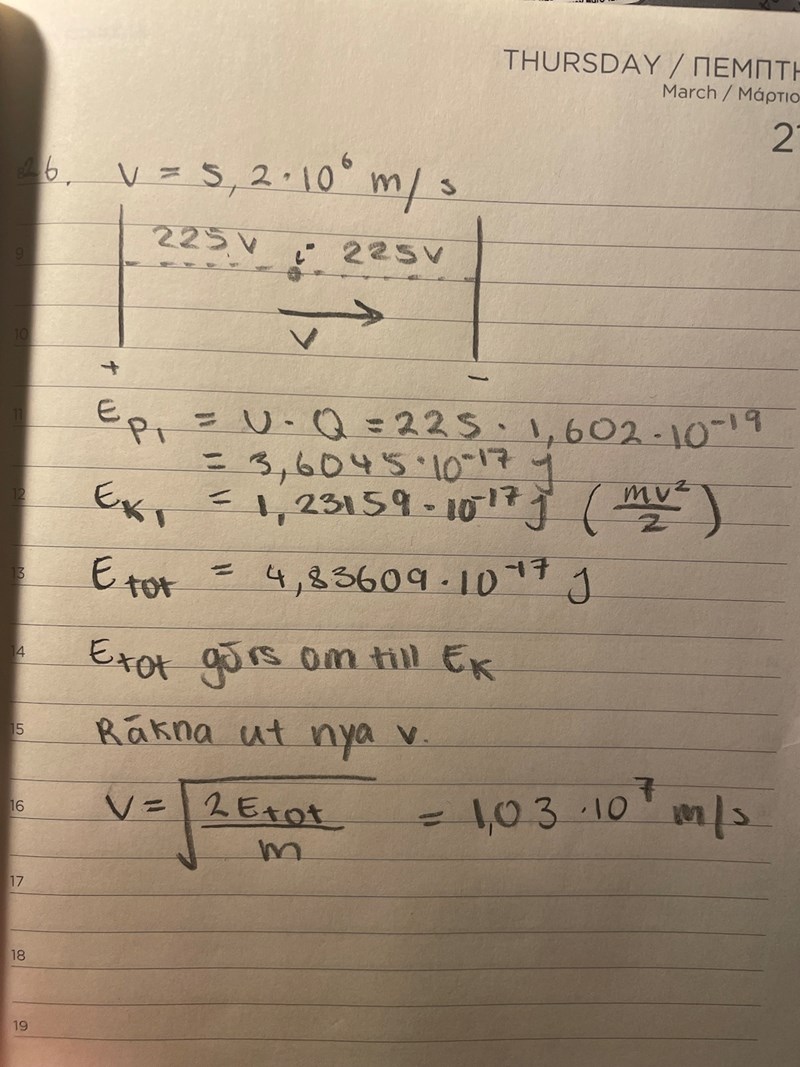 THURSDAY / ΠΕΜΠΤΗ
March / Μάρτιο
2
26. V = 5,2·10⁶ m/s
225 V 225V
V
+ -
9
10
11
E_p₁ = U · Q = 225 · 1,602·10⁻¹⁹
= 3,6045·10⁻¹⁷ J
12
E_K₁ = 1,23159·10⁻¹⁷ J (mv²/2)
13
E_tot = 4,83609·10⁻¹⁷ J
14
E_tot görs om till E_K
15
Räkna ut nya v.
16
V = √(2E_tot/m) = 1,03 ·10⁷ m/s
17
18
19